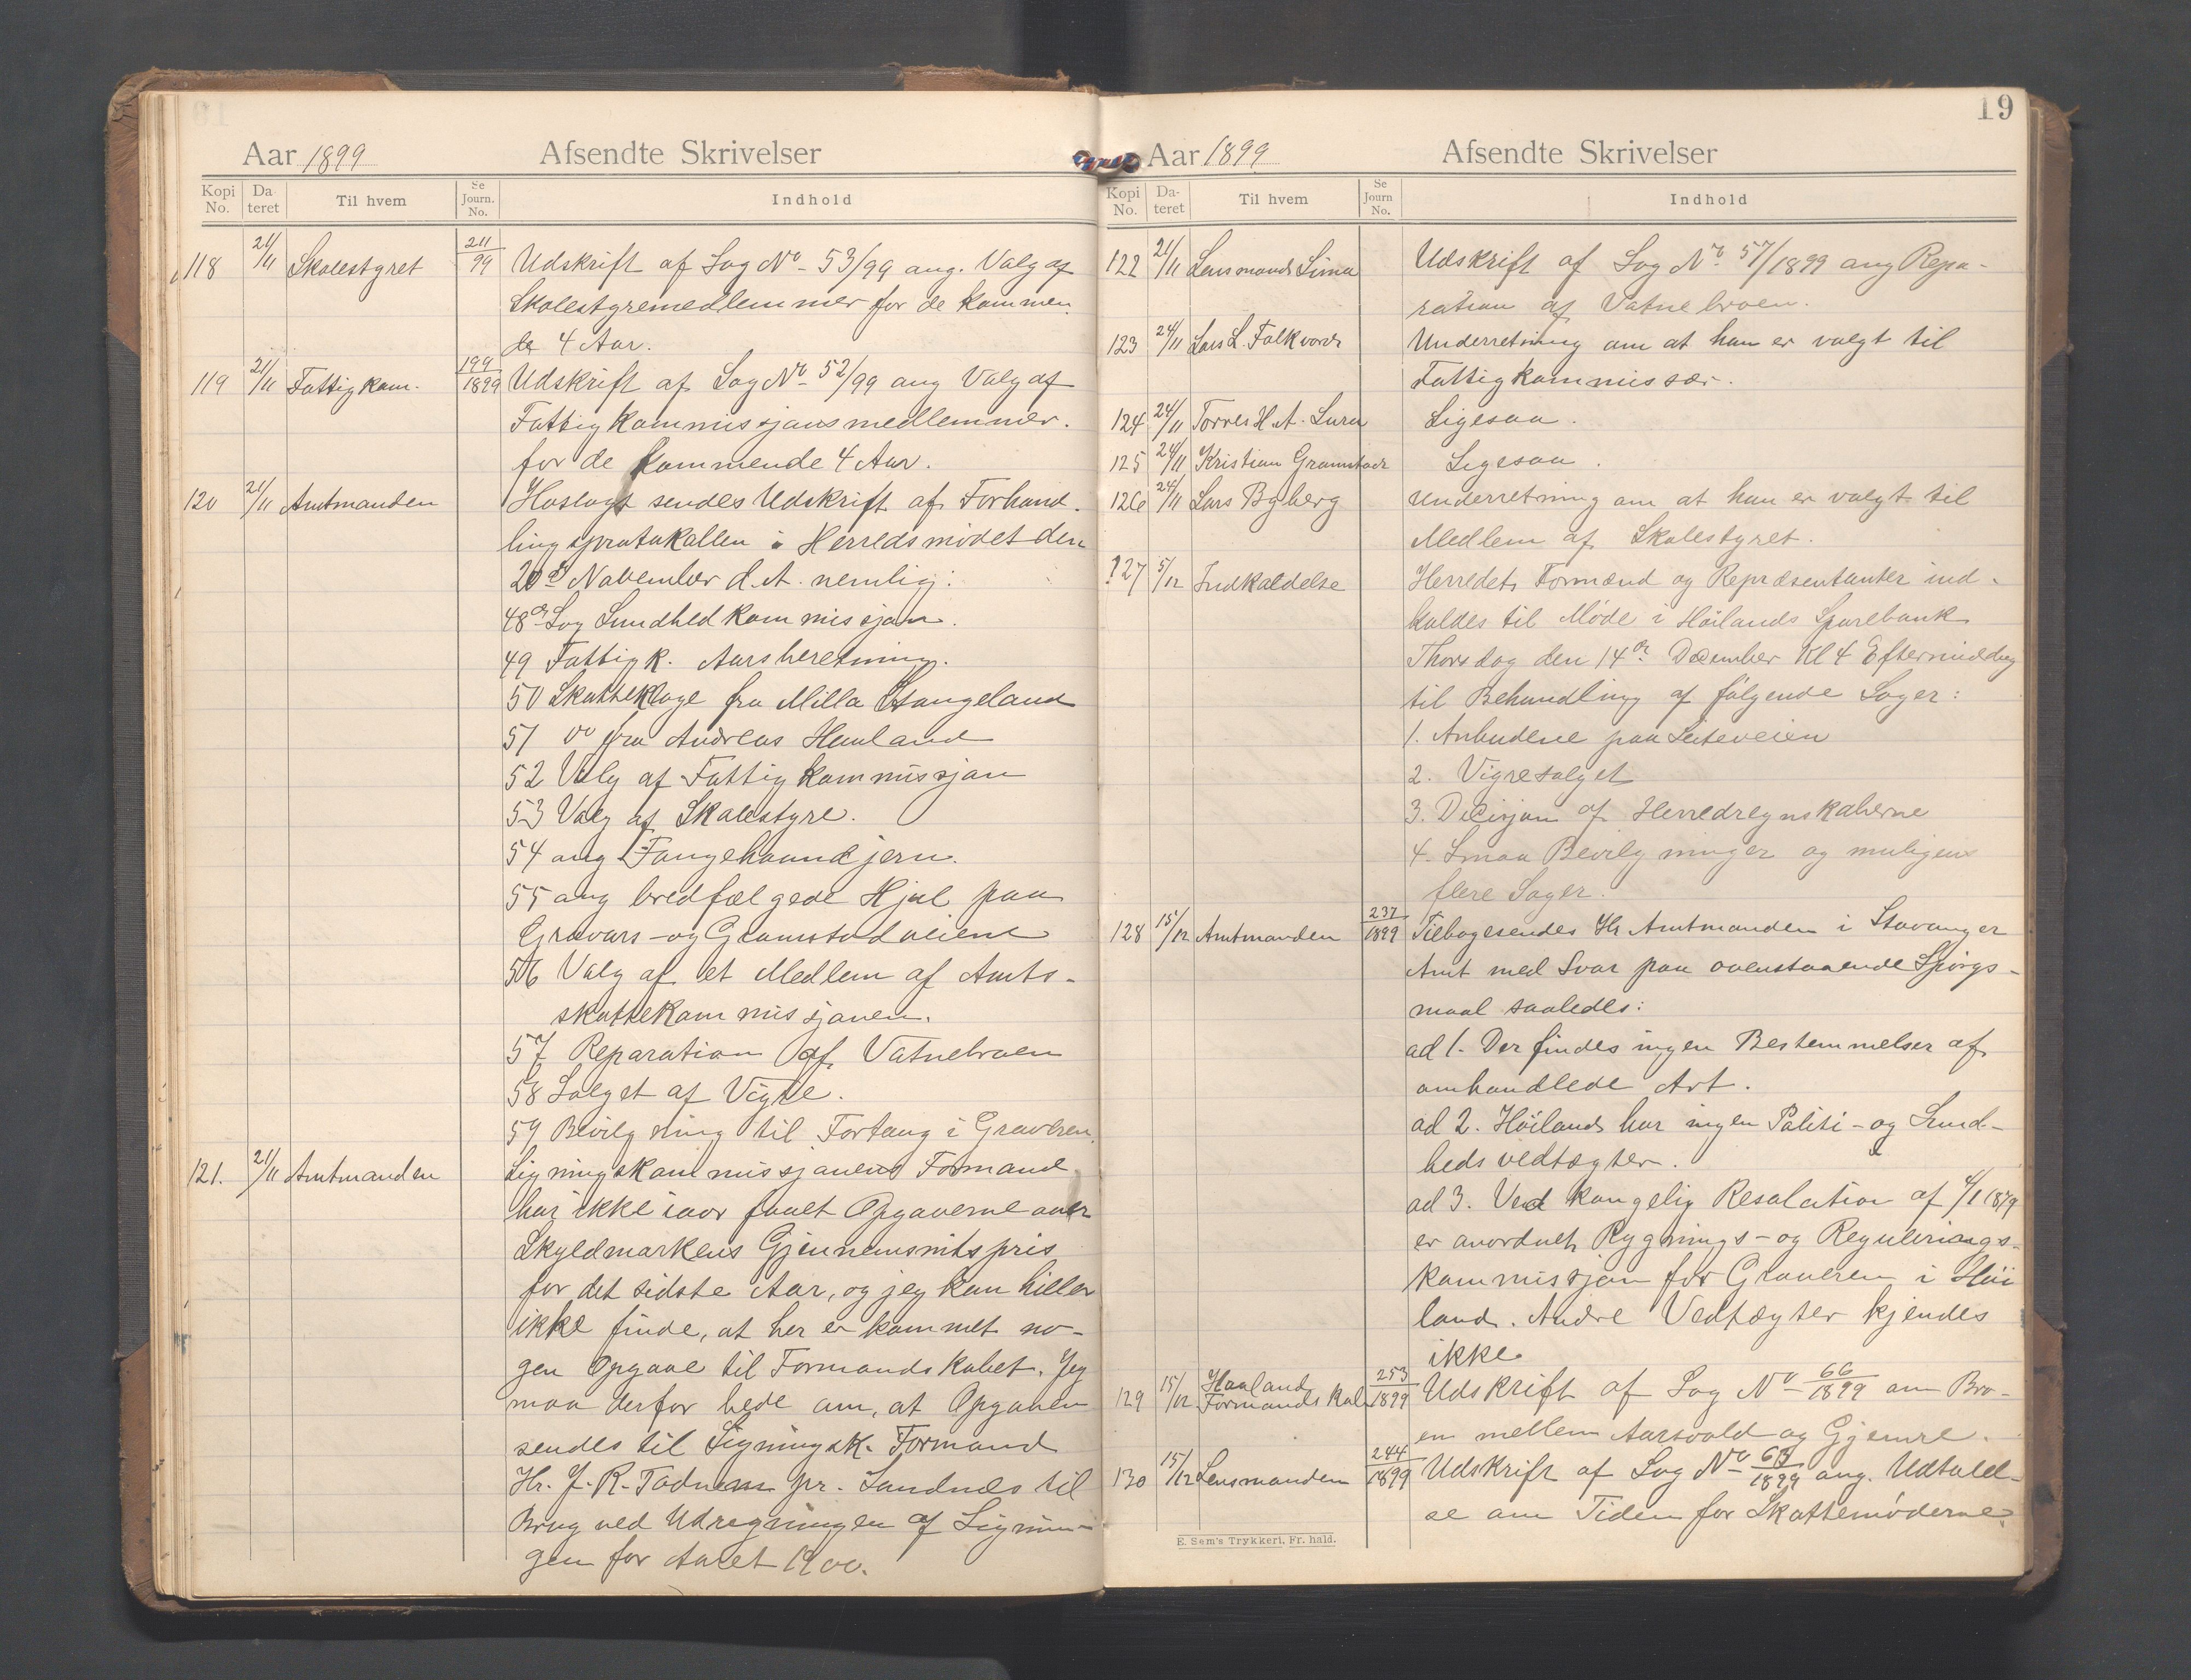 Aar 1899 Afsendte Skrivelser
Kopi No. Da-teret Til hvem Se Journ. No. Indhold
118 21/11 Skolestyret 211/99 Udskrift af Sag No 53/99 ang. Valg af
Skolestyremedlemmer for de kommen
de 4 Aar.
119 21/11 Fattigkom. 199/1899 Udskrift af Sag No 52/99 ang Valg af
Fattigkommissjonsmedlemmer.
for de kommende 4 Aar.
120 21/11 Amtmanden Hoslagt sendes Udskrift af Forhand-
lingsprotokollen i Herredsmødet den
20de November d.A. nemlig:
48de Sag Sundhedkommissjon.
49 Fattigk. Aarsberetning.
50 Skatteklage fra Milla Stangeland
51 Do fra Andreas Hauland
52 Valg af Fattigkommissjon
53 Valg af Skolestyre.
54 ang Fangehaandjern.
55 ang bredfælgede Hjul paa
Gravars- og Gramstadveiene
56 Valg af et Medlem af Amts-
skattekommissjonen.
57 Reparation af Vatnebroen
58 Salget af Vigre.
59 Bevilgning til Fortaug i Graveren.
121. 21/11 Amtmanden Ligningskommissjonens Formand
har ikke iaar faaet Opgaverne over
Skyldmarkens Gjennemsnitspris
for det sidste Aar, og jeg kan heller
ikke finde, at her er kommet no-
gen Opgave til Formandskabet. Jeg
maa derfor bede om, at Opgaven
sendes til Ligningsk. Formand
Hr. J. R. Tadnem pr. Sandnes til
Brug ved Udregningen af Lignin-
gen for Aaret 1900.
19
Aar 1899 Afsendte Skrivelser
Kopi No. Da-teret Til hvem Se Journ No. Indhold
122 21/11 Lensmand Lima Udskrift af Sag No. 57/1899 ang Repa-
ration af Vatnebroen.
123 24/11 Lars L. Folkvord Underretning om at han er valgt til
Fattigkommissær.
124 24/11 Torres H. A. Lura Ligesaa.
125 24/11 Kristian Gramstad Ligesaa.
126 24/11 Lars Byberg Underretning om at han er valgt til
Medlem af Skolestyret.
127 5/12 Indkaldelse Herredets Formænd og Repræsentanter ind-
kaldes til Møde i Høilands Sparebank
Thorsdag den 14de December Kl 4 Eftermiddag
til Behandling af følgende Sager:
1. Anbudene paa Leiteveien
2. Vigresalget
3. Decisjon af Herredregnskaberne
4. Smaa Bevilgninger og muligens
flere Sager.
128 15/12 Amtmanden 237/1899 Tilbagesendes Hr Amtmanden i Stavanger
Amt med Svar paa ovenstaaende Spørgs-
maal saaledes:
ad 1. Der findes ingen Bestemmelser af
omhandlede Art.
ad 2. Høiland har ingen Politi- og Sund-
hedsvedtægter.
ad 3. Ved kongelig Resolution af 4/1 1879
er anordnet Bygnings- og Regulerings-
kommissjon for Graveren i Høi
land. Andre Vedtægter kjendes
ikke
129 15/12 Haaland Formandskab 253/1899 Udskrift af Sag No 66/1899 om Bro-
en mellem Aarsvold og Gjemre.
130 15/12 Lensmanden 244/1899 Udskrift af Sag No 63/1899 ang. Udtalel-
se om Tiden for Skattemøderne.
E. Sem's Trykkeri, Fr. hald.